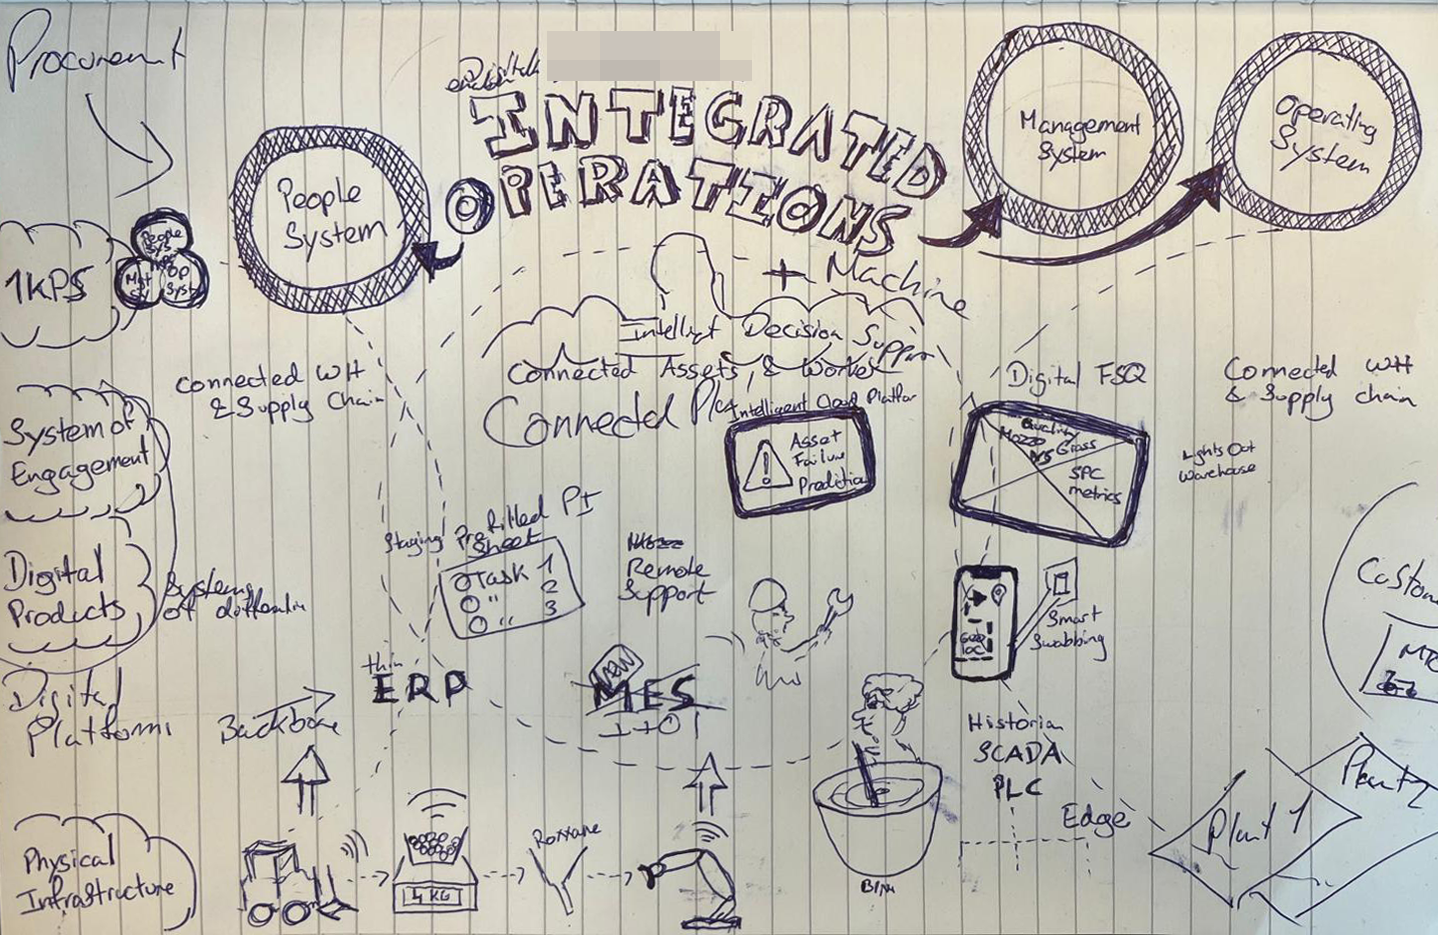 Procurement
INTEGRATED
OPERATIONS
People
System
Management
System
Operating
System
1KPS
People
Sys
Op
Syst
+ Machine
Intellect Decision Support
Connected Assets, & Worker
Connected
Intelligent
Connected WH
& Supply Chain
System of
Engagement
Digital
Products
Systems
of
Digital
Platforms
Physical
Infrastructure
Asset
Failure
Prediction
Digital FSQ
Quality
Mozzo
VS Grass
SPC
metrics
Connected WH
& Supply chain
Lights Out
Warehouse
Staging
PreFilled PI
Sheet
Task 1
" 2
" 3
Remote
Support
Smart
Swabbing
thin
ERP
NEW
MES
Backbone
Historian
SCADA
PLC
Edge
Plant 1
Plant 2
4 KG
Roxxane